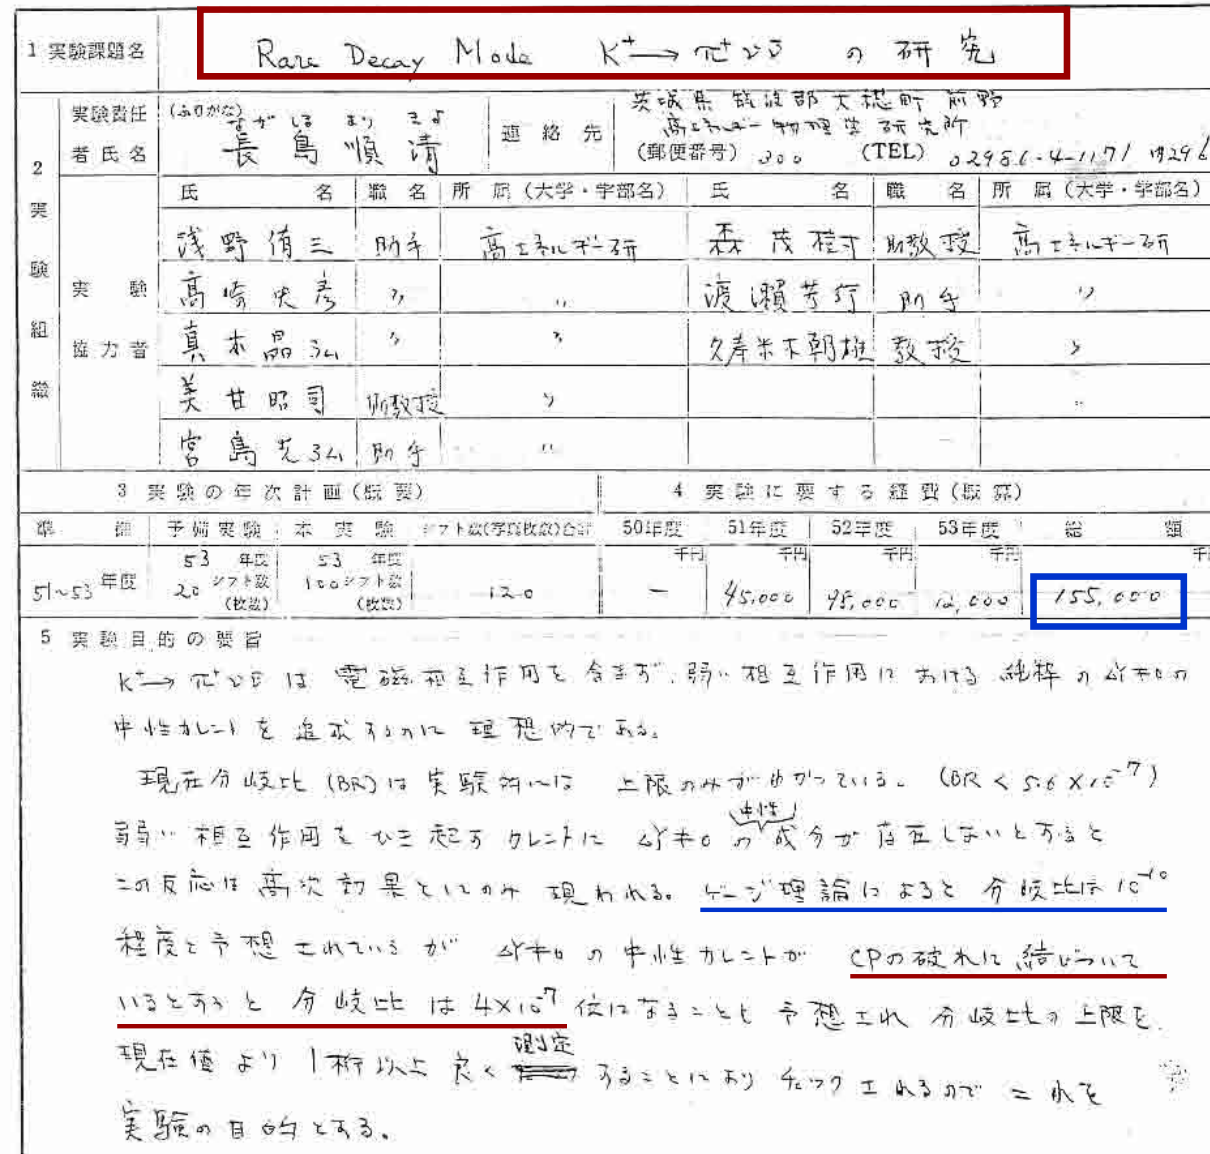 1 実験課題名 Rare Decay Mode K⁺→π⁺νν̄ の研究
2 実験組織
実験責任者氏名 (ふりがな) ながしま よりきよ
長島順清
連絡先 茨城県筑波郡大穂町前野
高エネルギー物理学研究所
(郵便番号) 300 (TEL) 02986-4-1171 内296
実験協力者
氏名 職名 所属(大学・学部名) 氏名 職名 所属(大学・学部名)
浅野侑三 助手 高エネルギー研 森茂樹 助教授 高エネルギー研
高崎史彦 〃 〃 渡瀬芳行 助手 〃
真木晶弘 〃 〃 久寿米木朝雄 教授 〃
美甘昭司 助教授 〃 〃
宮島光弘 助手 〃
3 実験の年次計画(概要) 4 実験に要する経費(概算)
準備 予備実験 本実験 シフト数(写真枚数)合計 50年度 51年度 52年度 53年度 総額
千円 千円 千円 千円 千円
51~53年度 53年度 20シフト数(枚数) 53年度 100シフト数(枚数) 120 — 45,000 98,000 12,000 155,000
5 実験目的の要旨
K⁺→π⁺νν̄ は電磁相互作用を含まず、弱い相互作用における純粋のΔY≠0の
中性カレントを追求するのに理想的である。
現在分岐比(BR)は実験的には上限のみがわかっている。(BR < 5.6×10⁻⁷)
弱い相互作用をひき起すカレントにΔY≠0の中性成分が存在しないとすると
この反応は高次効果としてのみ現われる。ゲージ理論によると分岐比は10⁻¹⁰
程度と予想されているがΔY≠0の中性カレントがCPの破れに結びついて
いるとすると分岐比は4×10⁻⁷位になることも予想され分岐比の上限を
現在値より1桁以上良く測定することによりチェックされるのでこれを
実験の目的とする。